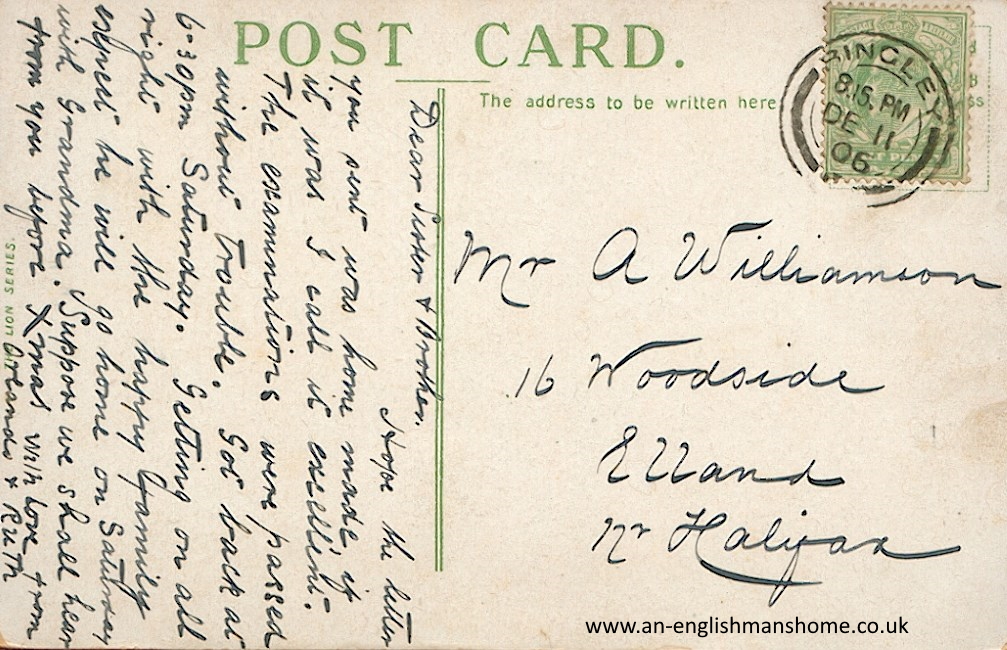 POST CARD.
The address to be written here
BINGLEY
8.15. PM
DE 11
06
Mr A Williamson
16 Woodside
Elland
Nr Halifax
Dear Sister & Brother.
Hope the letter
you sent was home made, if
it was I call it excellent.
The examinations were passed
without trouble. Got back at
6-30pm Saturday. Getting on all
right with the happy family
expect he will go home on Saturday
with Grandma. Suppose we shall hear
from you before Xmas with love from
& Ruth
LION SERIES.
www.an-englishmanshome.co.uk